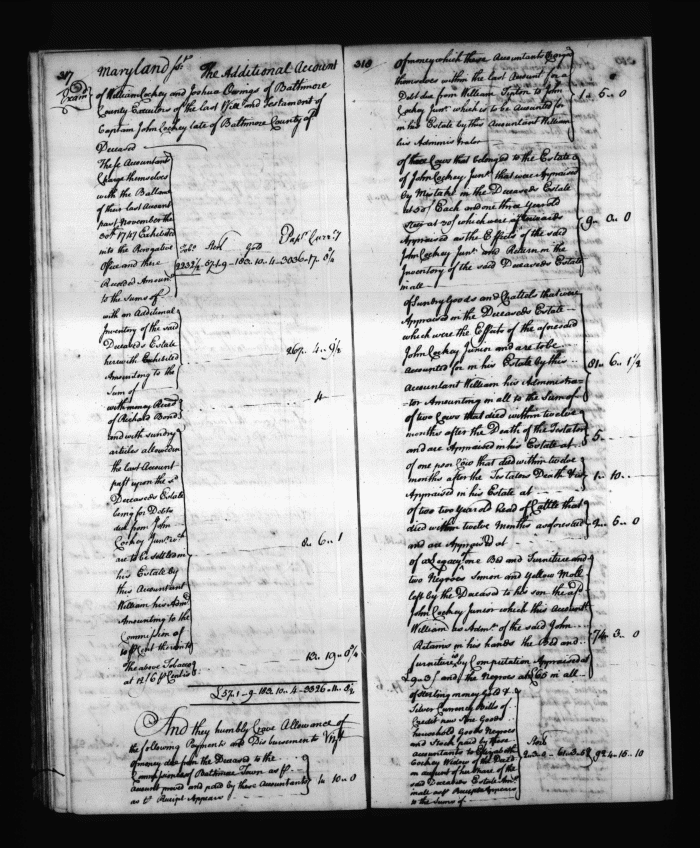 317
Maryland ss
The Additional Account
Exam
of William Cockey and Joshua Owings of Baltimore
County Executors of the last Will and Testament of
Captain John Cockey late of Baltimore County
Deceased
These Accountants
Charge themselves
with the Ballance
of their last Account
past November the
30th 1747 Exhibited
into the Prerogative
Office and there
Recorded Amount
to the Sums of
Tobo Sterl Gold Papr Curry
2232½ 57.1.9 183.10.4 3036.17
with an Additional
Inventory of the said
Deceaseds Estate
herewith Exhibited
Amounding to the
Sum of
267.. 4.. 9½
with money Recd
of Richard Bond
4
and with sundry
articles allowed in
the last Account
past upon the sd
Deceaseds Estate
being for Debts
due from John
Cockey Junr
are to be settled in
his Estate by
this Accountant
William his Admr
Amounting to the
8.. 6.. 1
Commission of
10 P Cent thereunto
The above Tobacco
at 12/6 P Cent is
£57.1..9..183..10..4..3326..11..
And they humbly Crave Allowance of
the following Payments and Disbursements Viz
of money due from the Deceased to the
Commissioners of Baltimore Town as P
account proved and paid by these Accountants
as P Receipt Appears
4.. 10.. 0
318
of money which these Accountants Charged
themselves within the last Account for a
Debt due from William Tipton to John
Cockey Junr which is to be Accounted for
in his Estate by this Accountant William
his Administrator
1.. 5.. 0
of three Cows that belonged to the Estate
of John Cockey Junr that were Appraised
by Mistake in the Deceaseds Estate
at 50/ Each and one three Year Old
Steer at 30/ which were afterwards
Appraised as the Effects of the said
John Cockey Junr and Return in the
Inventory of the said Deceaseds Estate
in all
9.. 0.. 0
of Sundry Goods and Chattels that were
Appraised in the Deceaseds Estate
which were the Effects of the aforesaid
John Cockey Junior and are to be
accounted for in his Estate by this
Accountant William his Administra-
-tor Amounting in all to the Sum of
81.. 6.. 1½
of two Cows that died within twelve
months after the Death of the Testator
and are Appraised in his Estate at
5
of one poor Cow that died within twelve
months after the Testators Death & is
Appraised in his Estate at
1.. 10
of two two Year old Head of Cattle that
died within twelve Months as aforesaid
and are Appraised at
2.. 5.. 0
of a Legacy one Bed and Furniture and
two Negroes Simon and Yellow Moll
left by the Deceased to his son the afsd
John Cockey Junior which this Accountt
William as Admr of the said John
Retains in his hands the Bed and
Furniture by Computation Appraised at
£9..3/ and the Negroes at £65 in all
74.. 3.. 0
of Sterling money Gold &
Silver Currency Bills of
Credit new Store Goods
household Goods Negroes
and Stock paid by these
accountants to Elizabeth
Cockey Widow of the Decd
in account of her Share of the
said Deceaseds Estate Amo
in all as P Receipts Appears
to the Sums of
Sterl
924.. 15.. 10